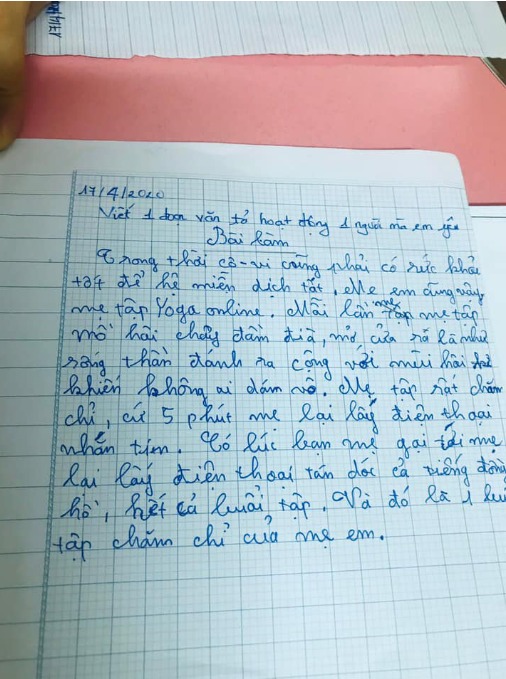 17/4/2020
Viết 1 đoạn văn tả hoạt động 1 người mà em yêu
Bài làm
Trong thời cô-vi cũng phải có sức khỏe
tốt để hệ miễn dịch tốt. Mẹ em cũng vậy,
mẹ tập Yoga online. Mỗi lần mẹ tập
mồ hôi chảy đầm đìa, mở cửa ra là như
sóng thần đánh ra cộng với mùi hôi
khiến không ai dám vô. Mẹ tập rất chăm
chỉ, cứ 5 phút mẹ lại lấy điện thoại
nhắn tin. Có lúc bạn mẹ gọi tới mẹ
lại lấy điện thoại tán dóc cả tiếng đồng
hồ, hết cả buổi tập. Và đó là 1
tập chăm chỉ của mẹ em.